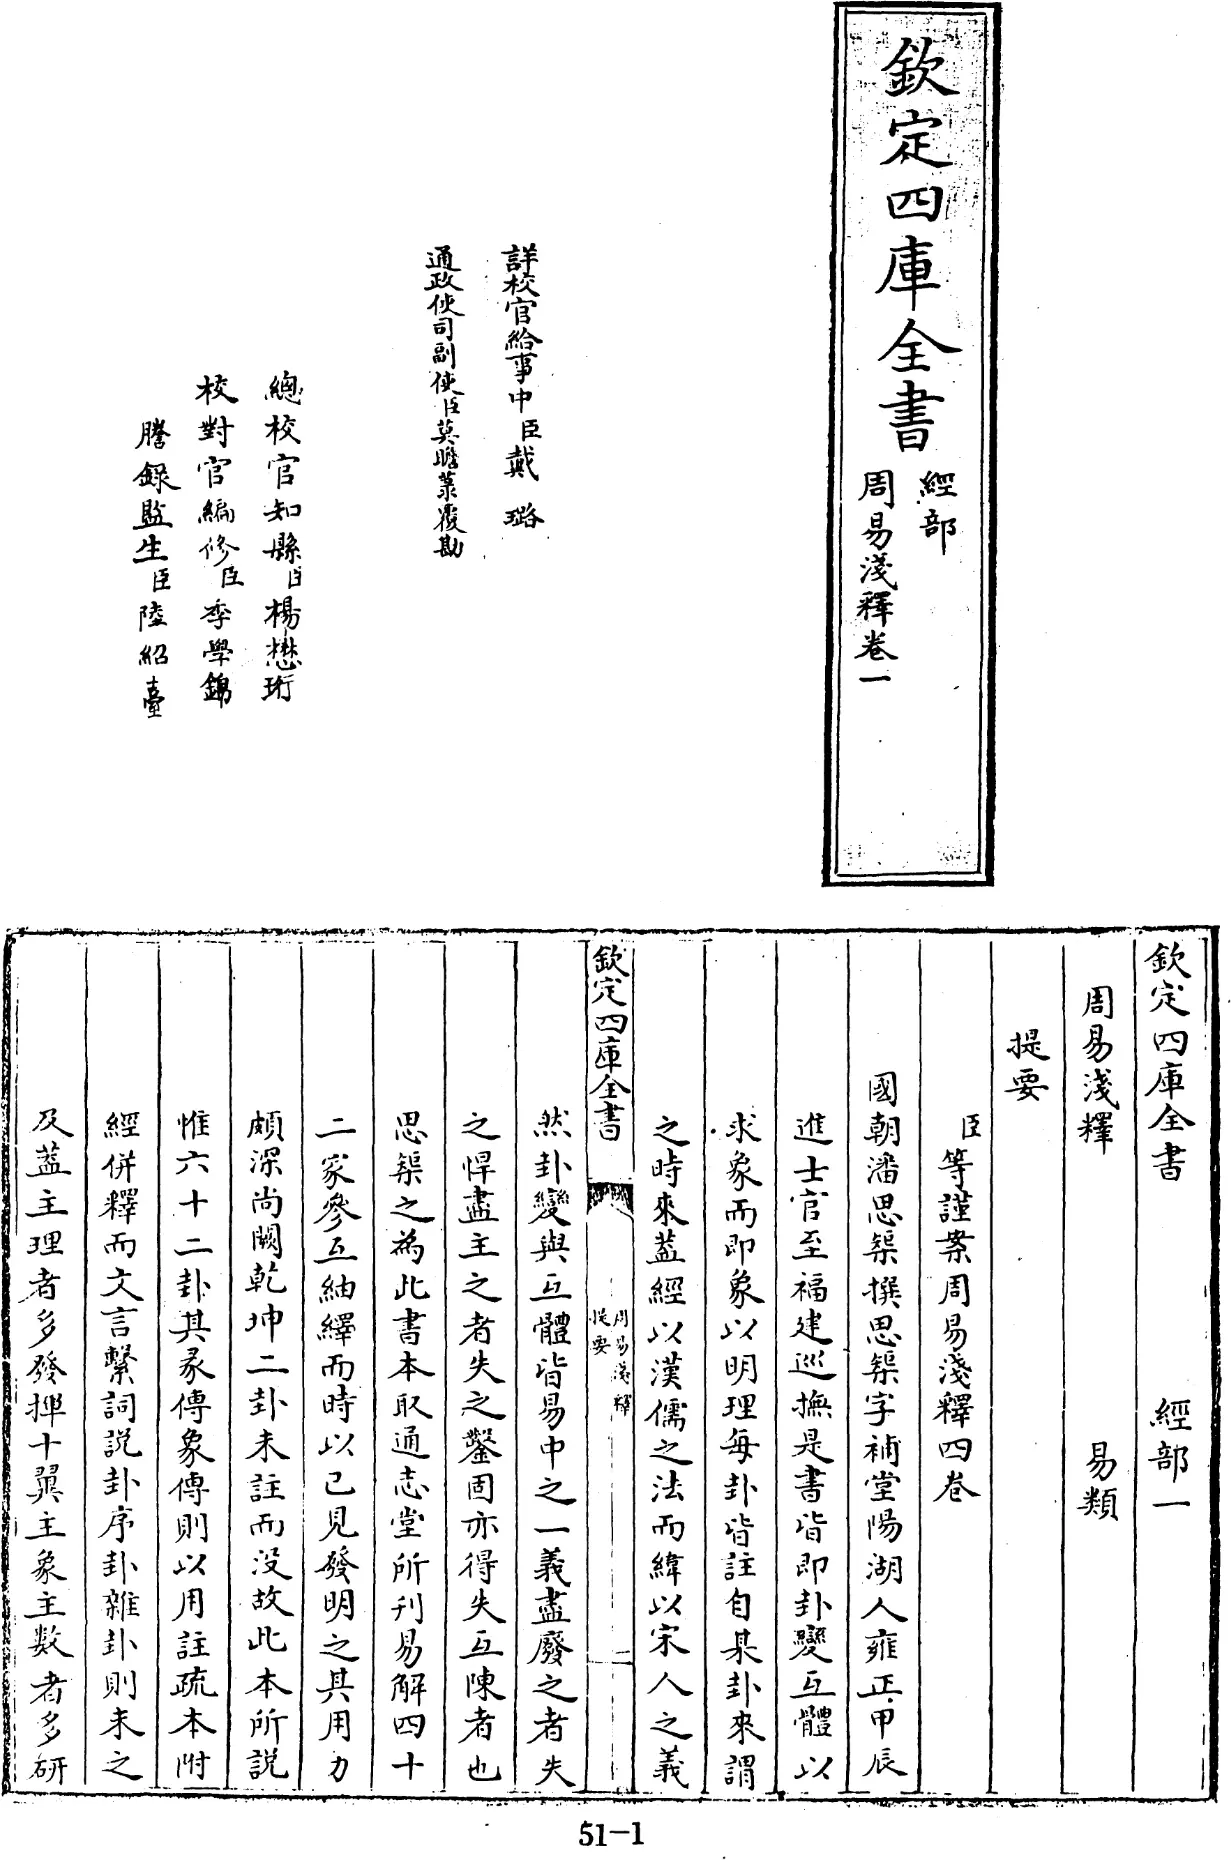 欽定四庫全書
經部
周易淺釋卷一
詳校官給事中臣戴璐
通政使司副使臣莫瞻菉覆勘
總校官知縣臣楊懋珩
校對官編修臣季學錦
謄錄監生臣陸紹臺
欽定四庫全書 經部一
周易淺釋 易類
提要
臣等謹案周易淺釋四卷
國朝潘思榘撰思榘字補堂陽湖人雍正甲辰
進士官至福建巡撫是書皆即卦變互體以
求象而即象以明理每卦皆註自某卦來謂
之時來葢經以漢儒之法而緯以宋人之義
欽定四庫全書
周易淺釋
提要
一
然卦變與互體皆易中之一義盡廢之者失
之悍盡主之者失之鑿固亦得失互陳者也
思榘之為此書本取通志堂所刋易解四十
二家參互紬繹而時以已見發明之其用力
頗深尚闕乾坤二卦未註而沒故此本所說
惟六十二卦其彖傳象傳則以用註疏本附
經併釋而文言繫詞說卦序卦雜卦則未之
及葢主理者多發揮十翼主象主數者多研
51-1